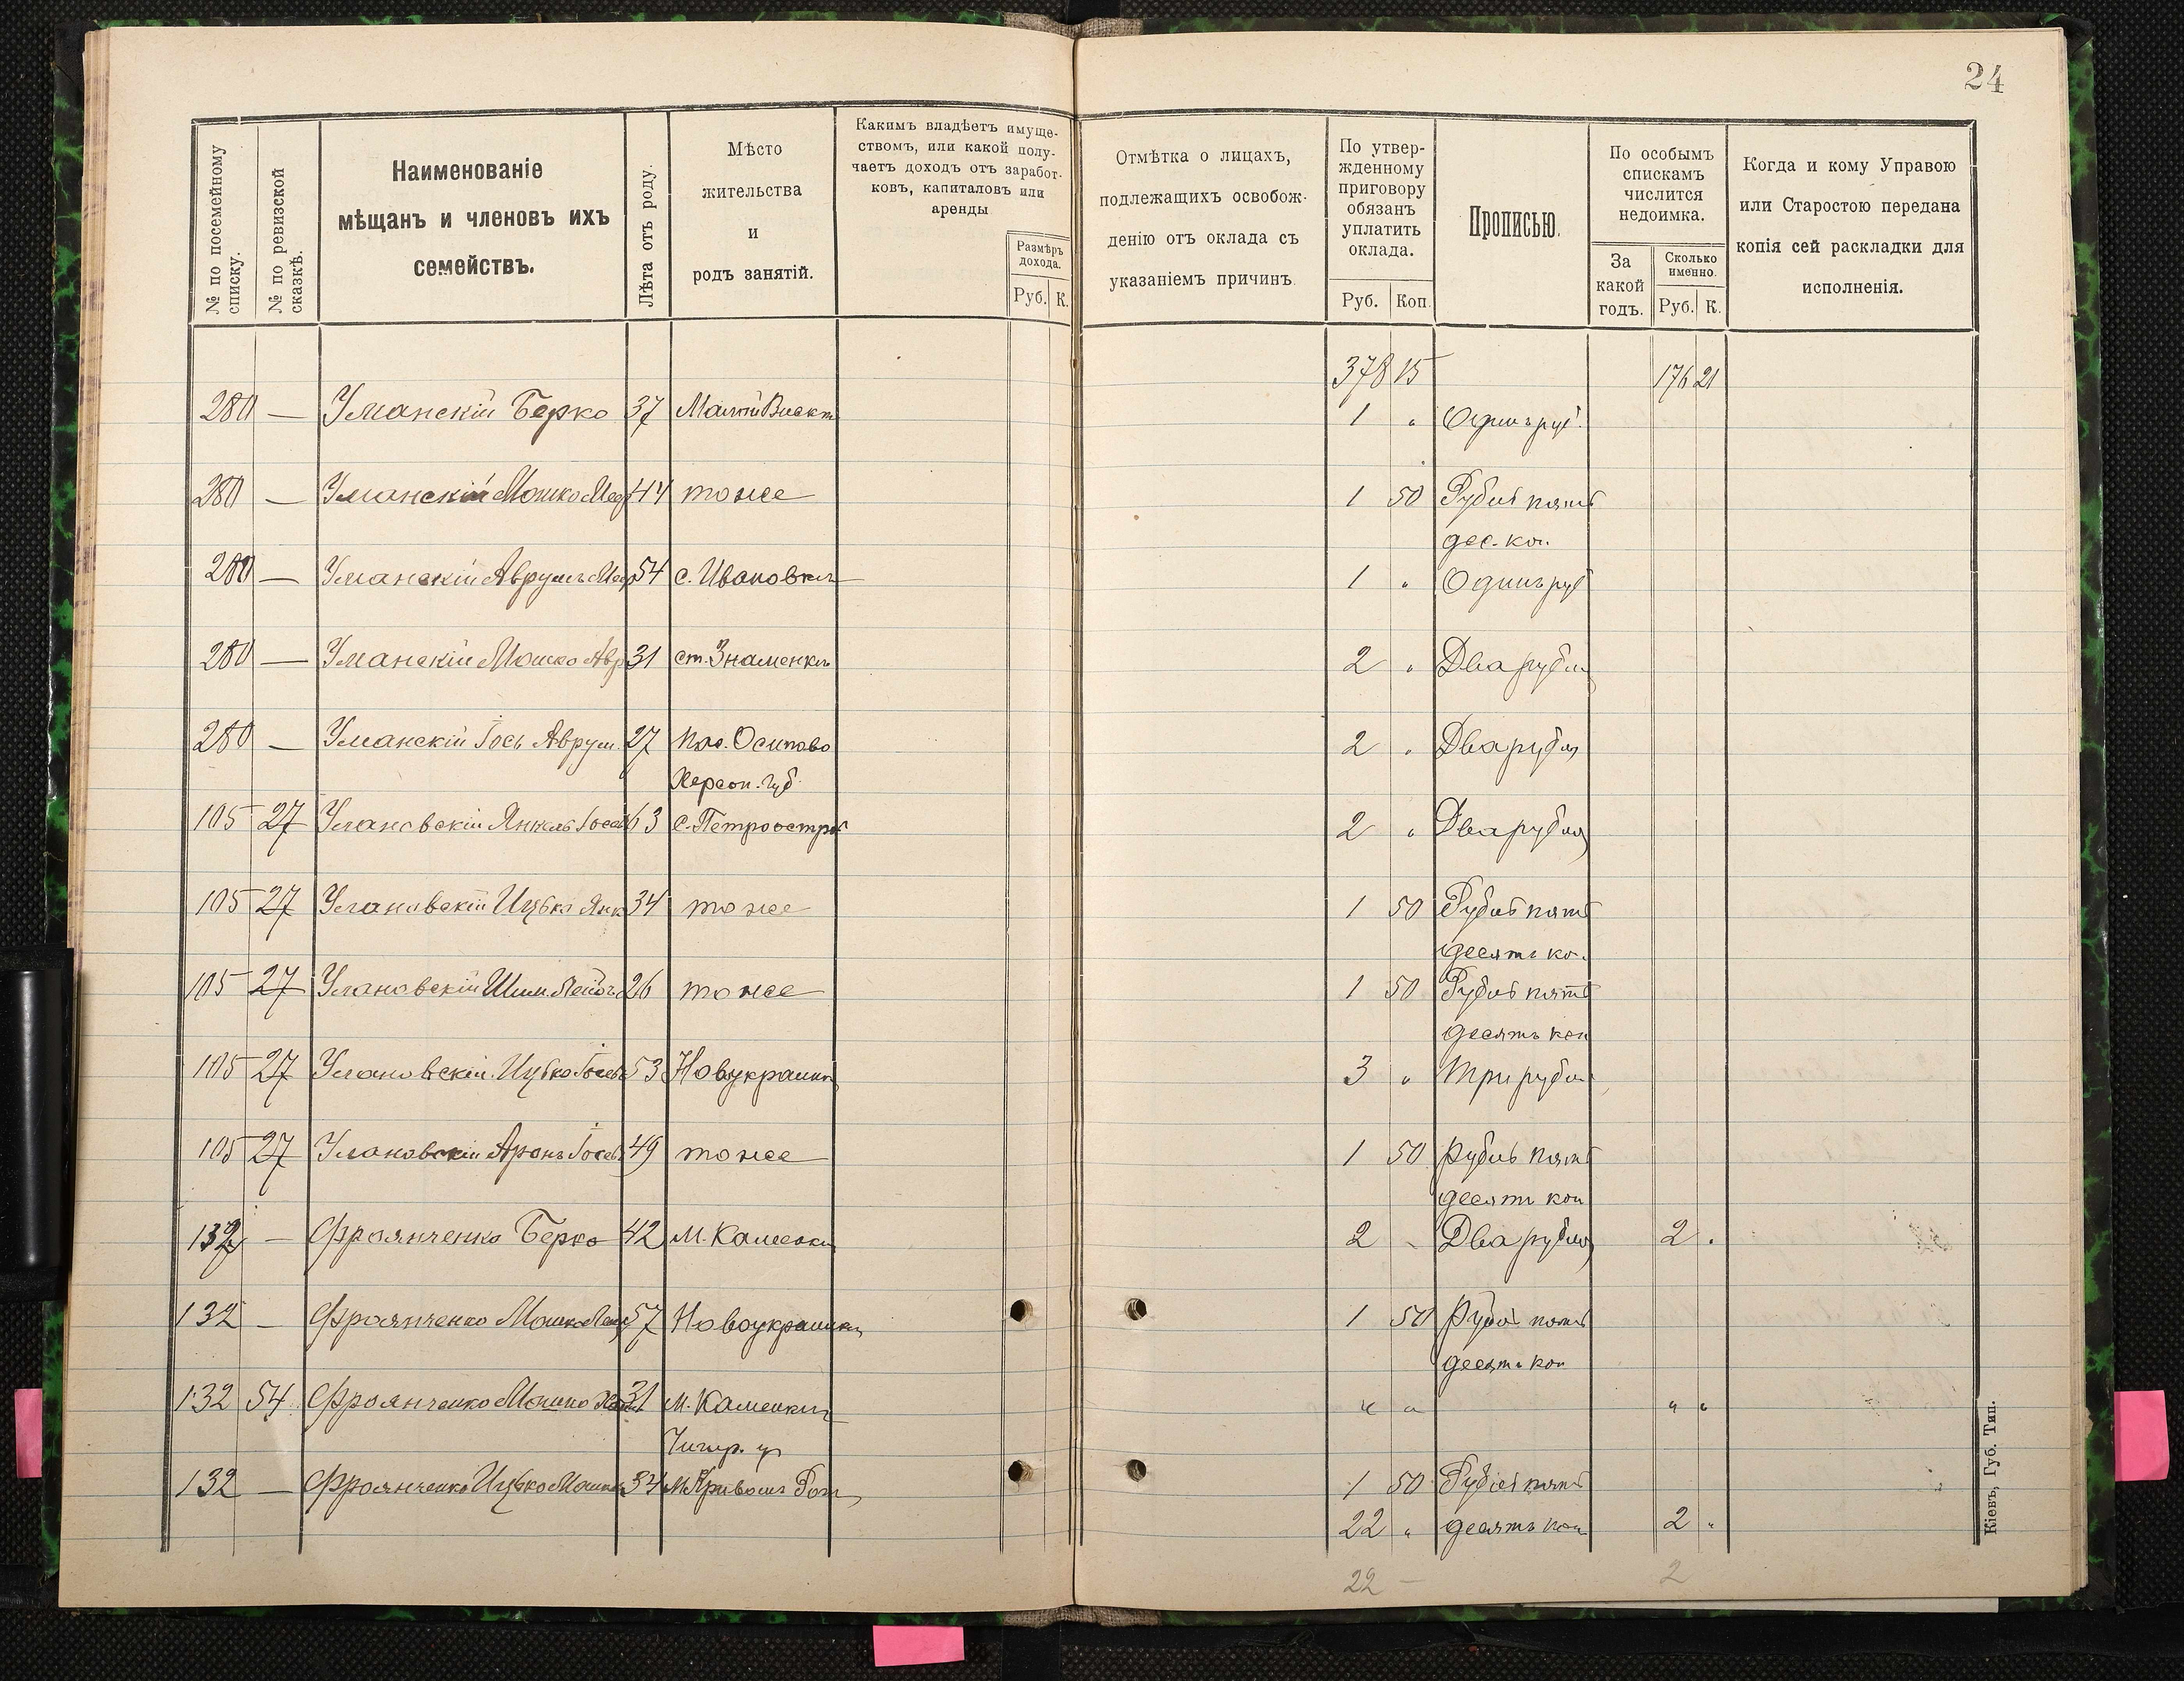 24
№ по посемейному списку.
№ по ревизской сказкѣ.
Наименованіе
мѣщанъ и членовъ ихъ
семействъ.
Лѣта отъ роду.
Мѣсто
жительства
и
родъ занятій.
Какимъ владѣетъ имуще-
ствомъ, или какой полу-
чаетъ доходъ отъ заработ-
ковъ, капиталовъ или
аренды
Размѣръ
дохода.
Руб. К.
Отмѣтка о лицахъ,
подлежащихъ освобож-
денію отъ оклада съ
указаніемъ причинъ
По утвер-
жденному
приговору
обязанъ
уплатить
оклада.
Руб. Коп.
Прописью.
По особымъ
спискамъ
числится
недоимка.
За
какой
годъ.
Сколько
именно.
Руб. К.
Когда и кому Управою
или Старостою передана
копія сей раскладки для
исполненія.
378 15 176 21
280 — Уманскій Берко 37 1 " Одинъ руб.
280 — Уманскій Мошко 44 тоже 1 50 Рубль пять
дес. коп.
280 — Уманскій Аврумъ 54 с. Ивановка 1 " Одинъ руб
280 — Уманскій Мошко Авр 31 ст. Знаменка 2 " Два рубля
280 — Уманскій Іось Аврум. 27 Пос. Осипово 2 " Два рубля
Херсон. губ.
105 27 Улановскій Янкель Іосев 63 с. Петроостров 2 " Два рубля
105 27 Улановскій Ицько Янк 34 тоже 1 50 Рубль пять
десятъ ко.
105 27 Улановскій Шим. 26 тоже 1 50 Рубль пять
десятъ коп
105 27 Улановскій Ицько Іосев 53 Новукраинк 3 " Три рубля
105 27 Улановскій Аронъ Іосев 49 тоже 1 50 Рубль пять
десятъ коп
132 — Фроянченко Берко 42 М. Каменка 2 " Два рубля 2 "
132 — Фроянченко Мошко 57 Новоукраинка 1 50 Рубль пять
десятъ коп
132 54 Фроянченко Мошко 31 М. Каменка " " " "
Чигир. у
132 — Фроянченко Ицько Мошк 34 М. 1 50 Рубль пять
22 " десятъ коп 2 "
22 — 2
Кіевъ, Губ. Тип.